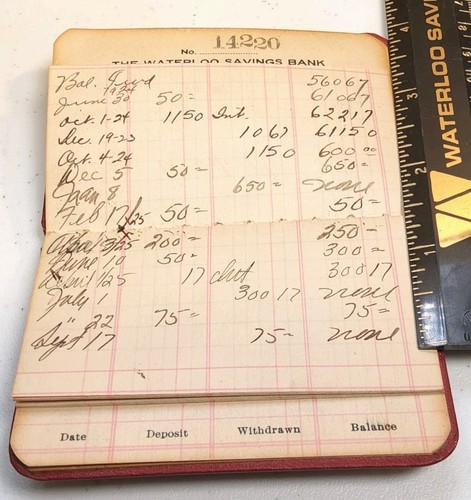 No. 14220
THE WATERLOO SAVINGS BANK
Bal. Fwd 56067
1924
June 30 50= 61067
Oct. 1-24 1150 Int. 62217
Dec. 19-23 1067 61150
Oct. 4-24 1150 600 00
Dec 5 50= 650=
Jan 8 650= none
Feb 17/25 50= 50=
3/25 200= 250=
June 10 50= 300=
April 1/25 17 Int 30017
July 1 30017 none
" 22 75= 75=
Sept 17 75= none
Date Deposit Withdrawn Balance
WATERLOO SAVI
1
2
3
4